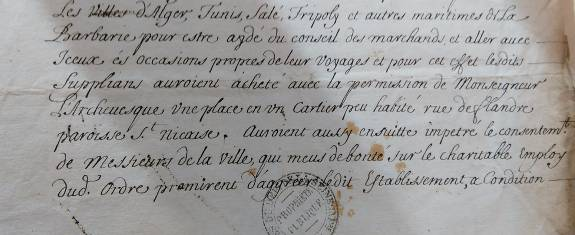 Les villes d'Alger, Tunis, Salé, Tripoly et autres maritimes de la
Barbarie pour estre aydé du conseil des marchands, et aller avec
Iceux és occasions propres de leur voyages et pour cet effet lesdits
Supplians auroient acheté avéc la permission de Monseigneur
L'Archeuesque vne place en vn Cartier peu habité rue de flandre
paroisse St. Nicaise. Auroient aussy ensuitte impetré le consentemt.
de Messieurs de la ville, qui meus de bonté sur le charitable employ
dud. Ordre promirent d'aggréer ledit Establissement, a Condition
PROPRIÉTÉ
PUBLIQUE